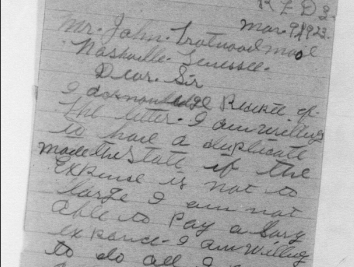 R F D 2.
Mar. 9, 1923.
Mr. John Trotwood Moore
Nashville Tenessee.
Dear. Sir
I acknowledge Receite of.
the letter. I am willing
to have a duplicate
made the State if the
expense is not to
large I am not
able to pay a larg
expance. I am willing
to do all I